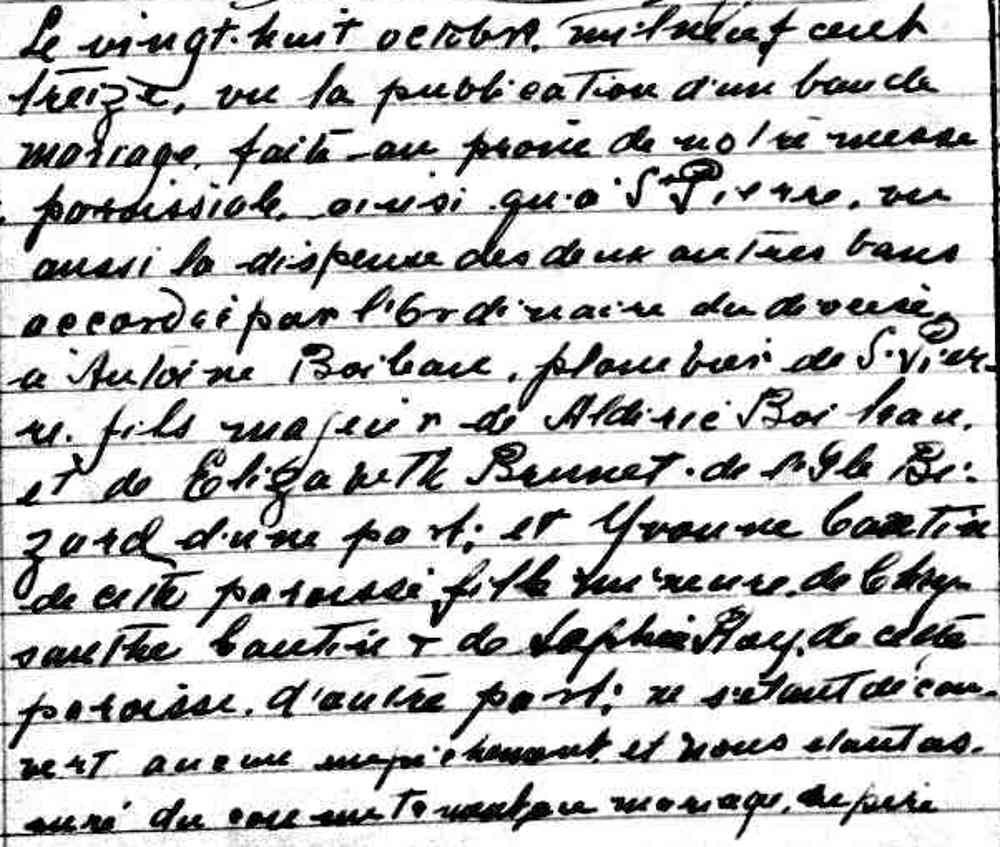 Le vingt-huit octobre, mil neuf cent
treize, vu la publication d'un ban de
mariage, faite au prône de notre messe
paroissiale, ainsi qu'à St Pierre, vu
aussi la dispense des deux autres bans
accordée par l'Ordinaire du diocèse,
à Antoine Boileau, plombier de St. Pier-
re, fils majeur de Aldéric Boileau,
et de Elizabeth Brunet de l'Ile Bi-
zard d'une part; et Yvonne Cantin
de cette paroisse, fille mineure, de Chry-
santhe Cantin & de Sophie Roy, de cette
paroisse, d'autre part; ne s'étant décou-
vert aucun empêchement, et nous étant as-
suré du consentement au mariage, du père